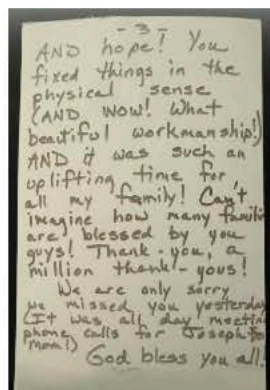 - 3 -
AND hope! You
fixed things in the
physical sense
(AND WOW! What
beautiful workmanship!)
AND it was such an
uplifting time for
all my family! Can't
imagine how many families
are blessed by you
guys! Thank-you, a
million thank-yous!
We are only sorry
we missed you yesterday
(It was all day meetin
phone calls for Joseph &
mom!)
God bless you all.